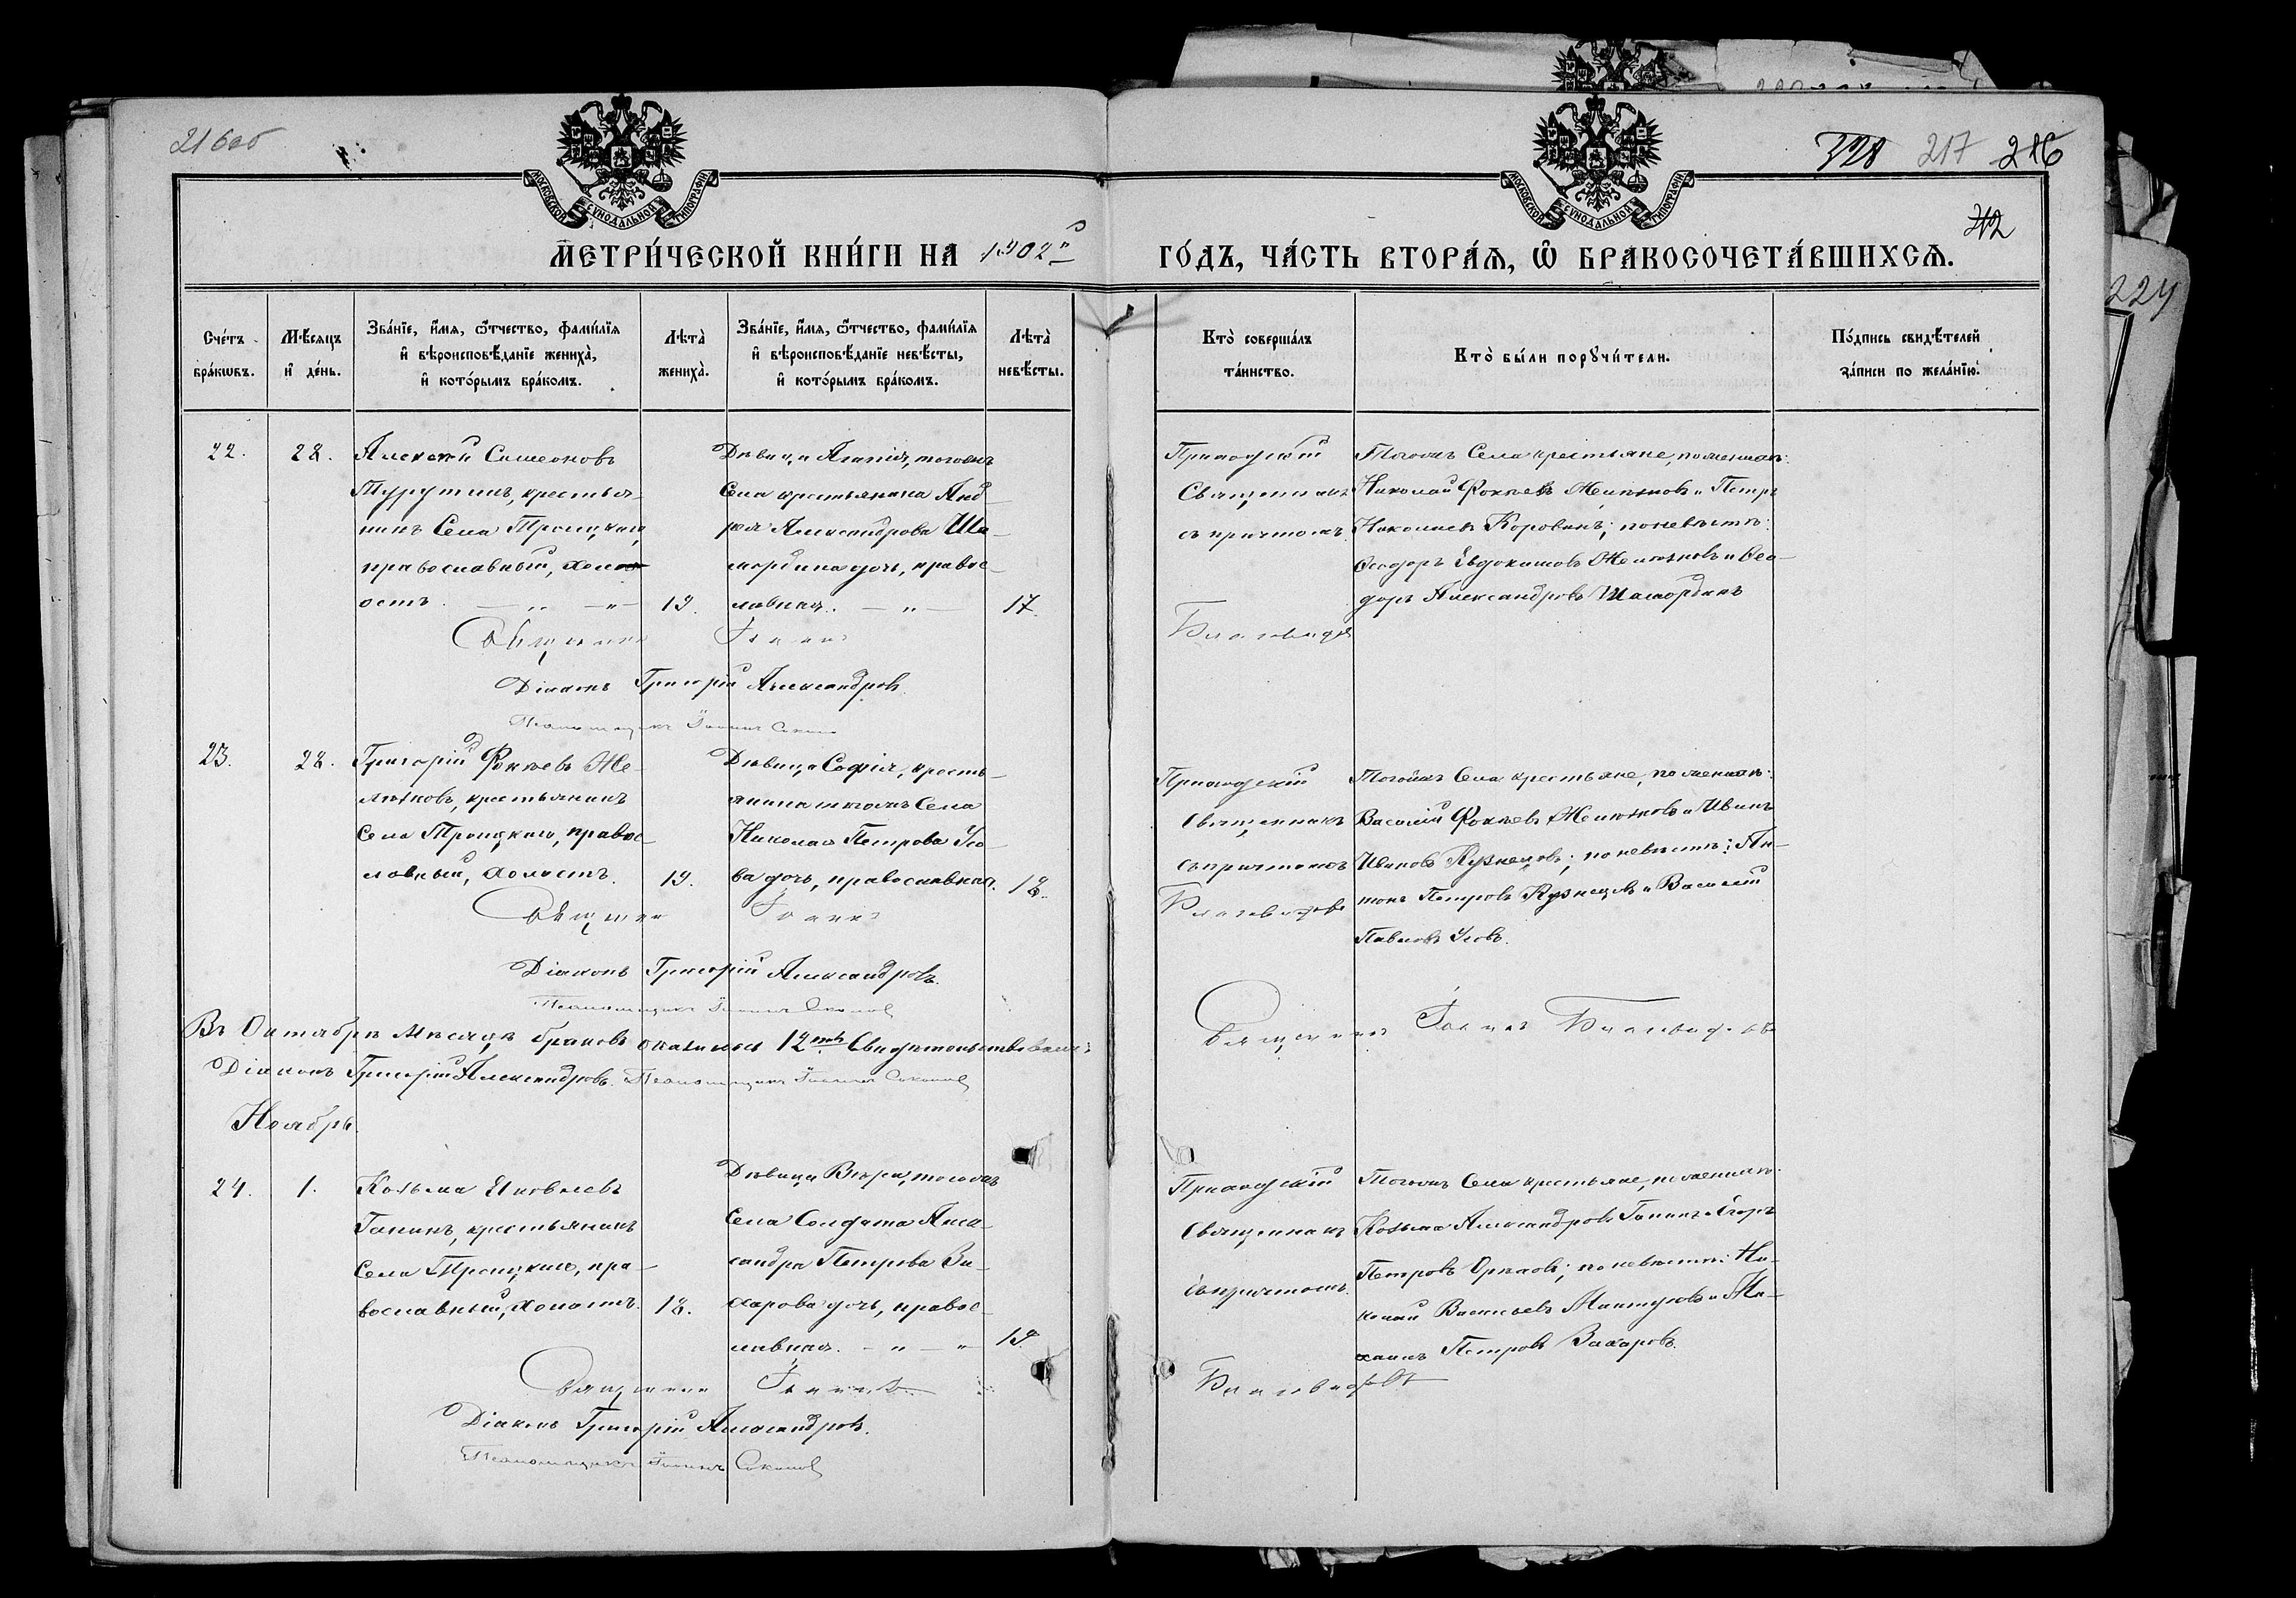 216об
328 217 216
212
224
МОСКОВСКОЙ СѴНОДАЛЬНОЙ ТИПОГРАФІИ
МОСКОВСКОЙ СѴНОДАЛЬНОЙ ТИПОГРАФІИ
МЕТРИ́ЧЕСКОЙ КНИ́ГИ НА 1902й ГО́ДЪ, ЧА́СТЬ ВТОРА́Ѧ, Ѡ БРАКОСОЧЕТА́ВШИХСѦ.
Сче́тъ
бра́кѡвъ.
Мѣ́сѧцъ
и҆ де́нь.
Зва́нїе, и҆́мѧ, ѻ҆́тчество, фами́лїѧ
и҆ вѣроисповѣ́данїе жениха̀,
и҆ кото́рымъ бра́комъ.
Лѣта̀
жениха̀.
Зва́нїе, и҆́мѧ, ѻ҆́тчество, фами́лїѧ
и҆ вѣроисповѣ́данїе невѣ́сты,
и҆ кото́рымъ бра́комъ.
Лѣта̀
невѣ́сты.
Кто̀ соверша́лъ
та́инство.
Кто̀ бы́ли порꙋчи́тели.
По́дпись свидѣ́телей
за́писи по жела́нїю.
22.
28.
Алексѣй Симеоновъ
Турутинъ, крестья-
нинъ Села Троицкаго,
православный, холо-
остъ.
19.
Дѣвица Агапія, тогожъ
Села крестьянина Анд-
рея Александрова Ша-
мордина дочь, правос-
лавная.
17.
Приходскій
Священникъ
съ причтомъ.
Тогожъ Села крестьяне, по женихѣ:
Николай Фокѣевъ Желѣзновъ и Петръ
Николаевъ Коровинъ; по невѣстѣ:
Ѳеодоръ Евдокимовъ Желѣзновъ и Ѳео-
доръ Александровъ Шамординъ
Священникъ Іоаннъ Благовидовъ
Діаконъ Григорій Александровъ.
Псаломщикъ Іоаннъ Соколовъ
23.
28.
Григорій Фокѣевъ Же-
лѣзновъ, крестьянинъ
Села Троицкаго, правос-
лавный, холостъ.
19.
Дѣвица Софія, кресть-
янина тогожъ Села
Николая Петрова Усо-
ва дочь, православная.
18.
Приходскій
Священникъ
съ причтомъ
Тогожъ Села крестьяне, по женихѣ:
Василій Фокѣевъ Желѣзновъ и Иванъ
Ивановъ Кузнецовъ; по невѣстѣ: Пла-
тонъ Петровъ Кузнецовъ и Василій
Павловъ Усовъ.
Священникъ Іоаннъ Благовидовъ
Діаконъ Григорій Александровъ.
Псаломщикъ Іоаннъ Соколовъ
Въ Октябрѣ мѣсяцѣ браковъ оказалось 12ть Свидѣтельствовали:
Священникъ Іоаннъ Благовидовъ
Діаконъ Григорій Александровъ. Псаломщикъ Іоаннъ Соколовъ
Ноябрь.
24.
1.
Козьма Яковлевъ
Ганинъ, крестьянинъ
Села Троицкаго, пра-
вославный, холостъ.
18.
Дѣвица Вѣра, тогожъ
Села Солдата Алек-
сандра Петрова За-
харова дочь, правос-
лавная.
19.
Приходскій
Священникъ
съ причтомъ.
Тогожъ Села крестьяне, по женихѣ:
Козьма Александровъ Ганинъ и Егоръ
Петровъ Орѣховъ; по невѣстѣ: Ни-
колай Васильевъ Мантуровъ и Ми-
хаилъ Петровъ Захаровъ.
Священникъ Іоаннъ Благовидовъ
Діаконъ Григорій Александровъ.
Псаломщикъ Іоаннъ Соколовъ